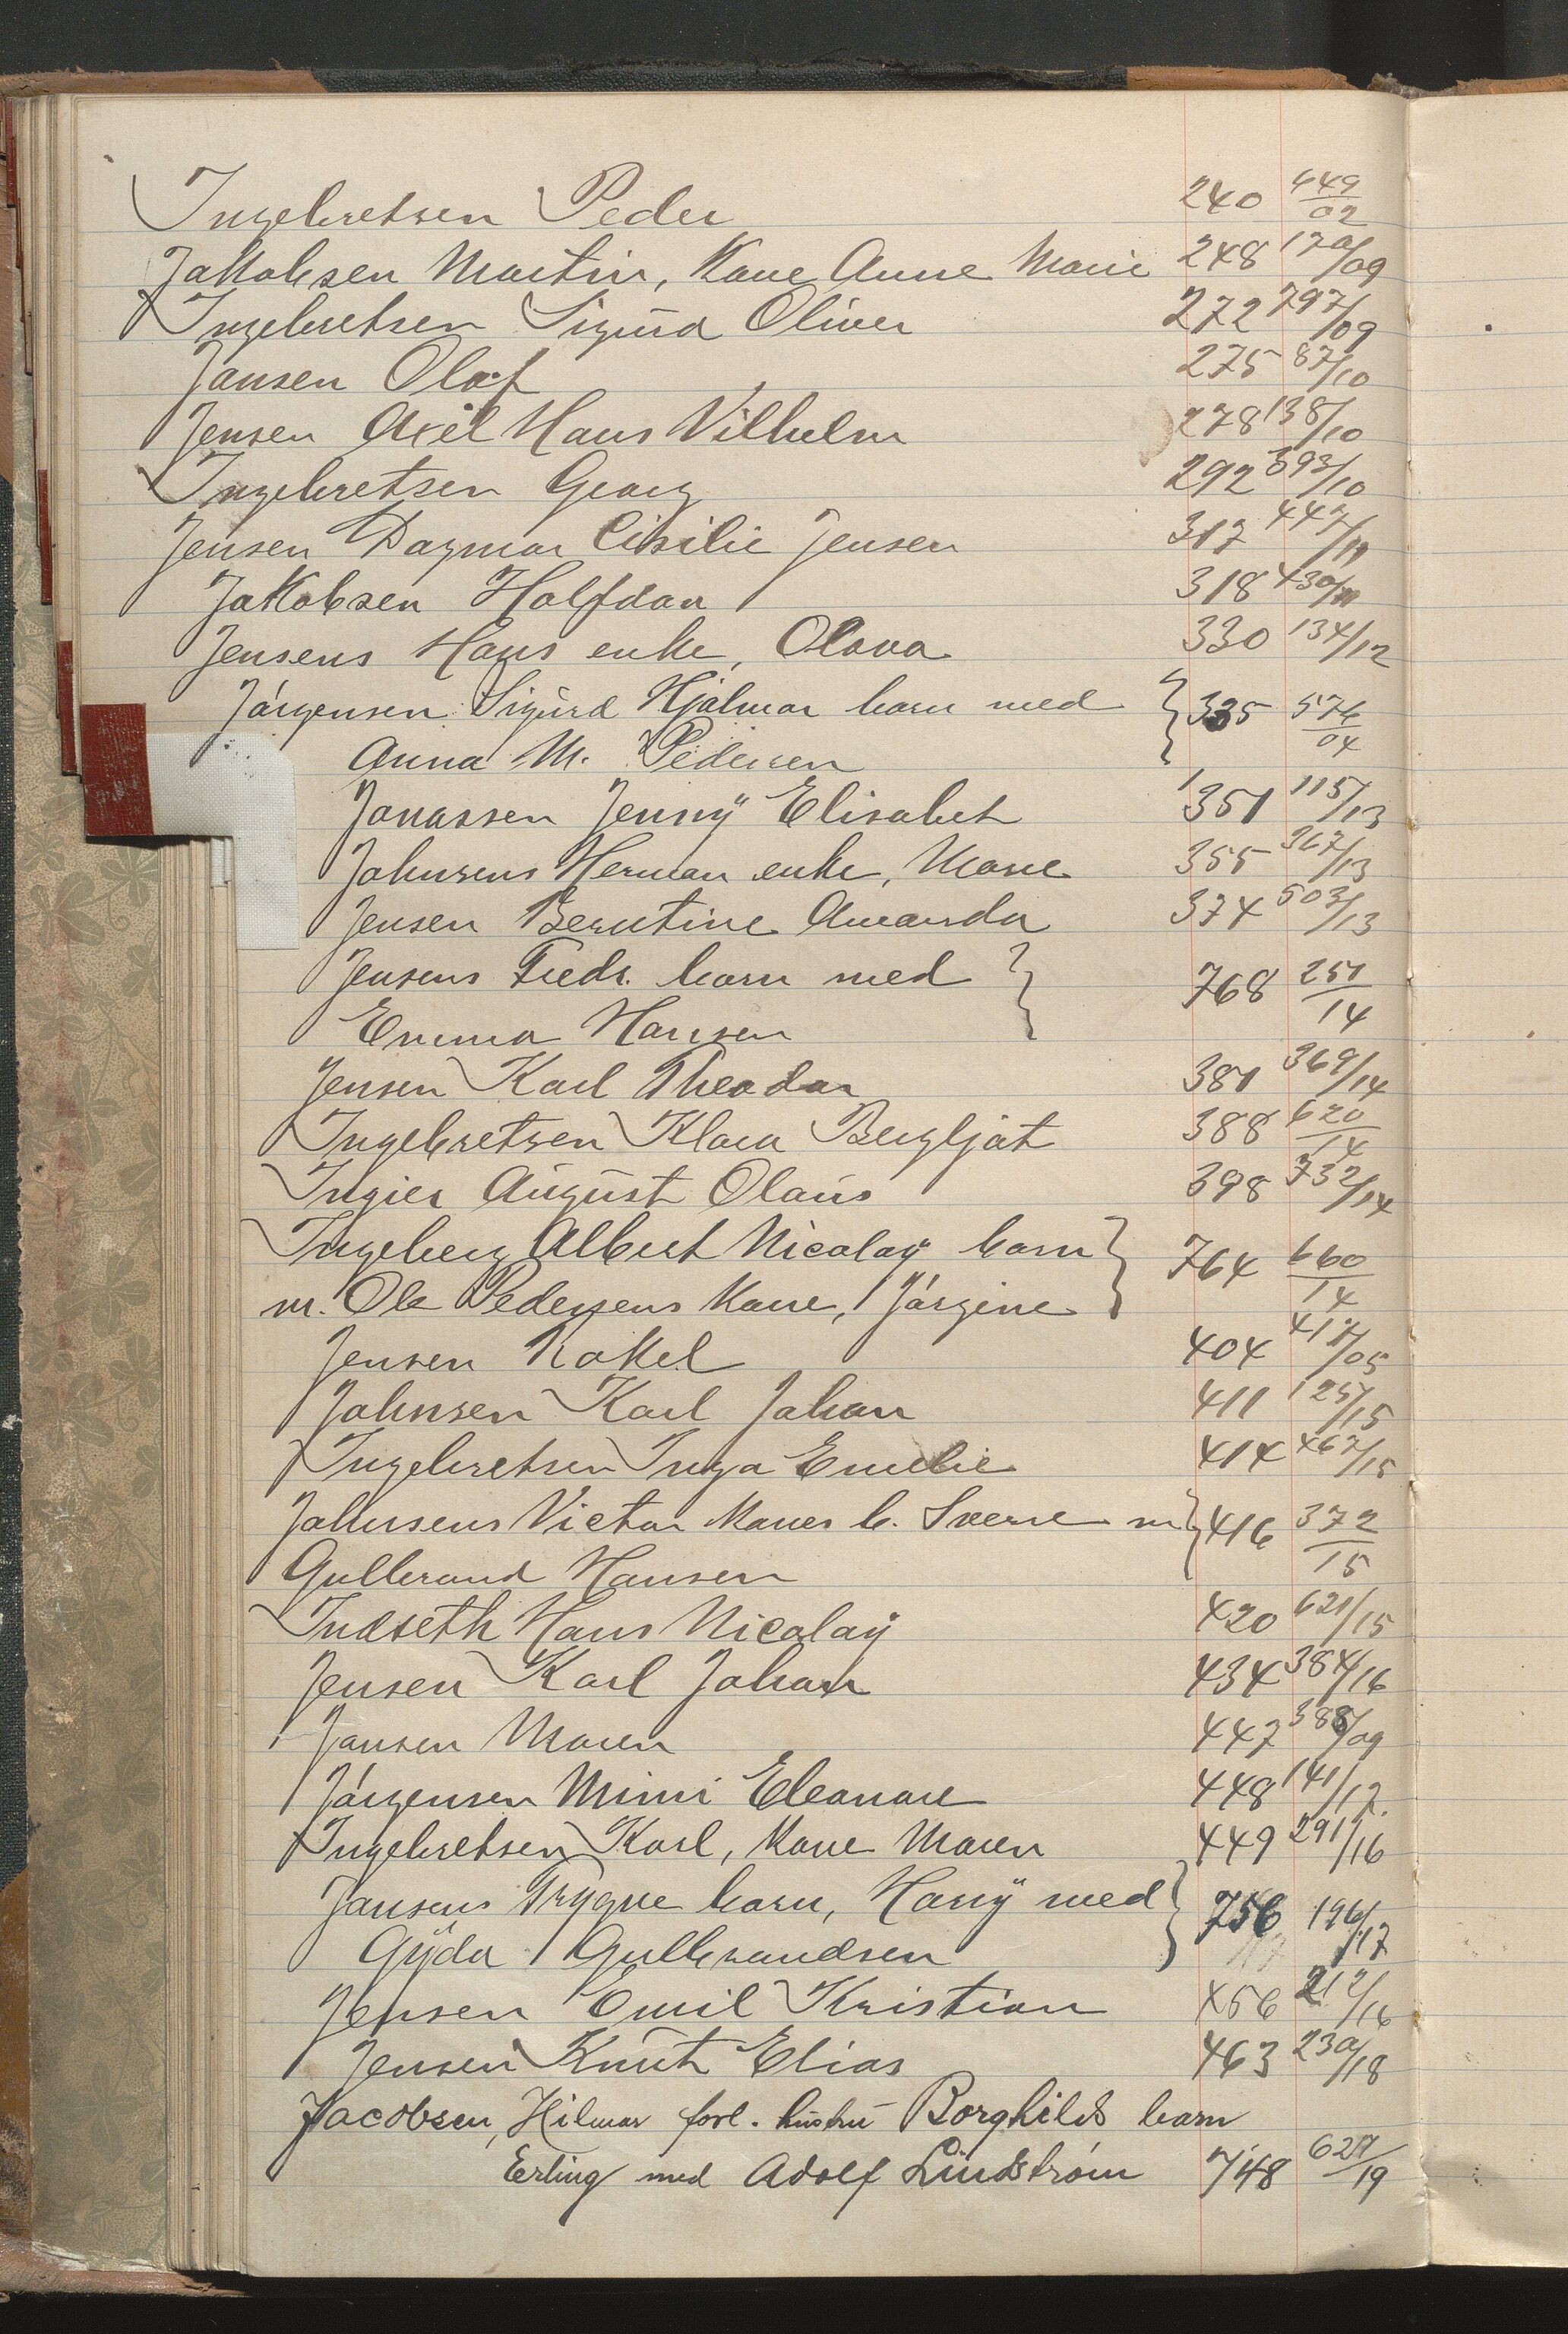 Ingebretsen Peder 240 649/02
Jakobsen Martin, Kone Anne Marie 248 170/09
Ingebretsen Sigurd Oliver 272 797/09
Jansen Olaf 275 87/10
Jensen Axel Hans Vilhelm 278 138/10
Ingebretsen Georg 292 393/10
Jensen Dagmar Cisilie Jensen 317 447/11
Jakobsen Halfdan 318 430/11
Jensens Hans enke, Olava 330 134/12
Jørgensen Sigurd Hjalmar barn med 335 576/04
Anna M. Pedersen
Jonassen Jenny Elisabet 351 115/13
Johnsens Herman enke, Marie 355 367/13
Jensen Berntine Amanda 374 503/13
Jensens Fredr. barn med 768 251/14
Emma Hansen
Jensen Karl Theodor 381 369/14
Ingebretsen Klara Bergljot 388 620/14
Ingier August Olaus 398 732/14
Ingeberg Albert Nicolay barn 764 660/14
m. Ole Pedersens Kone, Jørgine
Jensen Rakel 404 417/05
Johnsen Karl Johan 411 125/15
Ingebretsen Inga Emelie 414 467/15
Johnsens Victor Kones b. Sverre m 416 372/15
Gulbrand Hansen
Indseth Hans Nicolay 420 621/15
Jensen Karl Johan 434 384/16
Jansen Maren 447 388/09
Jørgensen Mimi Eleonore 448 141/12
Ingebretsen Karl, Kone Maren 449 291/16
Jansens Trygve barn, Harry med 756 196/17
Gyda Gulbrandsen
Jensen Emil Kristian 456 212/16
Jensen Knut Elias 463 230/18
Jacobsen, Hilmar forl. hustru Borghilds barn
Erling med Adolf Lindstrøm 748 627/19